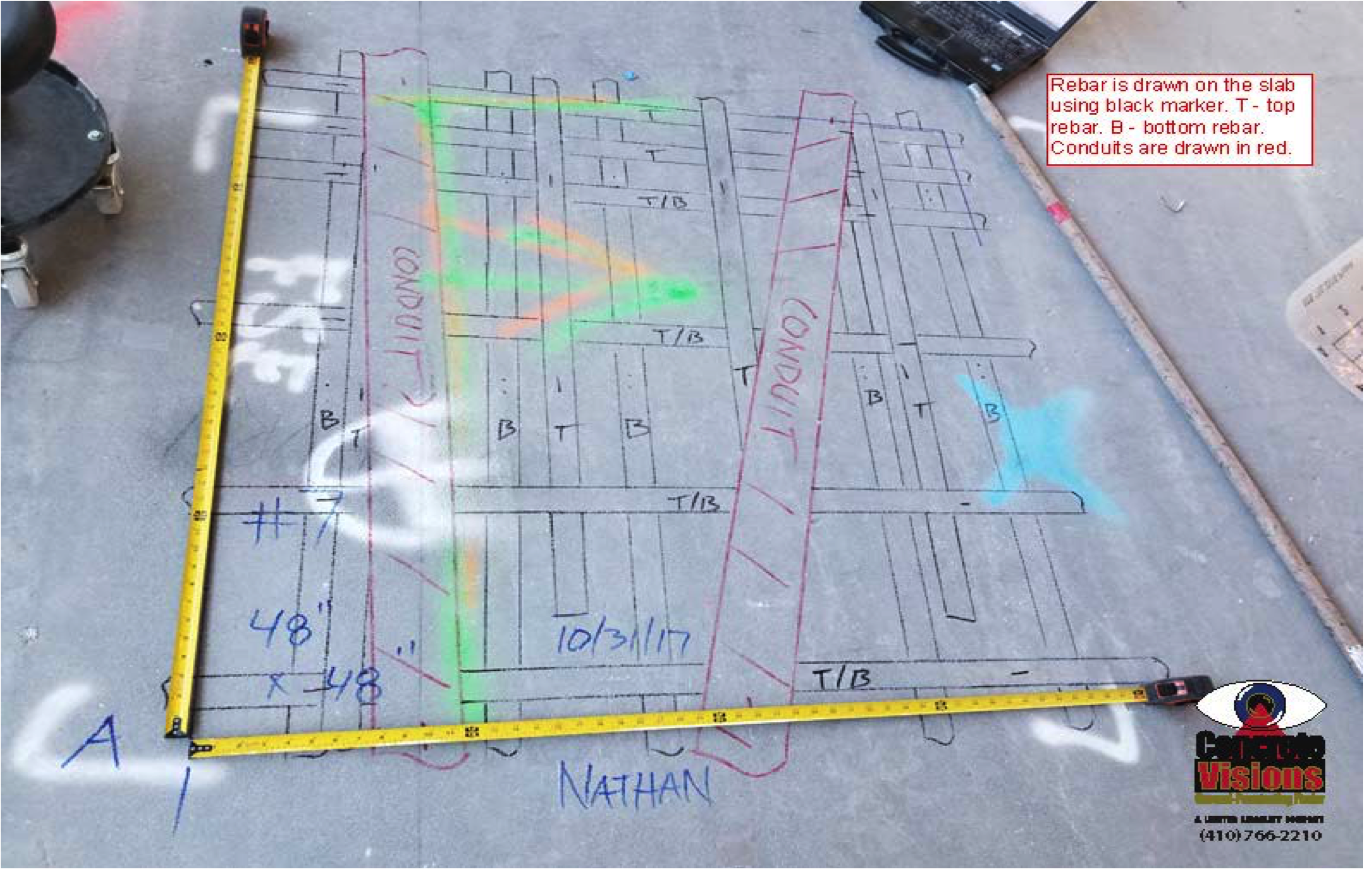 Rebar is drawn on the slab
using black marker. T - top
rebar. B - bottom rebar.
Conduits are drawn in red.
T
T/B
CONDUIT
CONDUIT
T/B
T
B
T
B
T
B
B
T
B
T/B
#7
48"
x 48"
10/31/17
T/B
A
1
NATHAN
Concrete
Visions
Ground-Penetrating Radar
A LIMITED LIABILITY COMPANY
(410) 766-2210